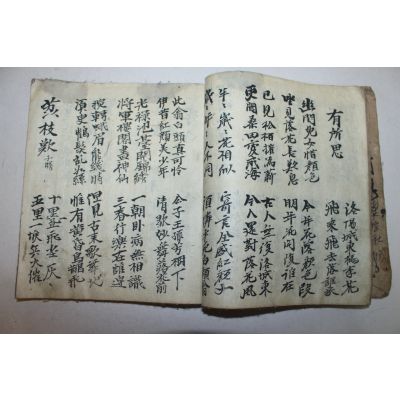 有所思
洛陽城東桃李花
飛來飛去落誰家
幽閨兒女惜顔色
坐見落花長歎息
今年花落顔色改
明年花開復誰在
已見松栢摧爲薪
更聞桑田變成海
古人無復洛城東
今人還對落花風
年年歲歲花相似
歲歲年年人不同
寄言全盛紅顔子
須憐半死白頭翁
此翁白頭真可怜
伊昔紅顔美少年
公子王孫芳樹下
清歌妙舞落花前
光祿池臺開錦繡
將軍樓閣畫神仙
一朝卧病無相識
三春行樂在誰邊
婉轉蛾眉能幾時
須臾鶴髮亂如絲
但見古來歌舞地
惟有黃昏鳥雀飛
荔枝歎 子瞻
十里一置飛塵灰
五里一堠兵火催